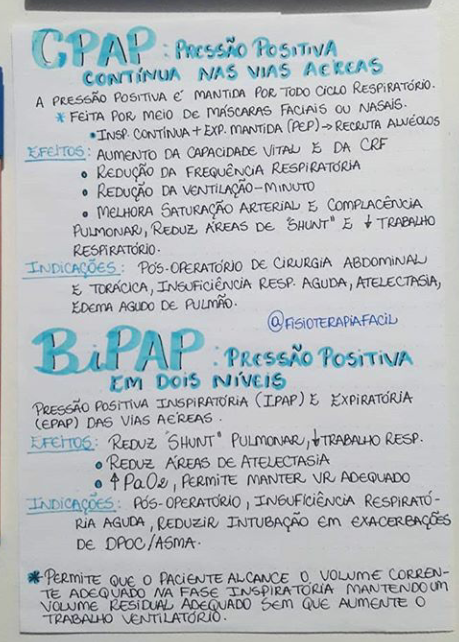 CPAP: PRESSÃO POSITIVA
CONTÍNUA NAS VIAS AÉREAS
A PRESSÃO POSITIVA É MANTIDA POR TODO CICLO RESPIRATÓRIO.
* FEITA POR MEIO DE MÁSCARAS FACIAIS OU NASAIS.
• INSP. CONTÍNUA + EXP. MANTIDA (PEP) → RECRUTA ALVÉOLOS
EFEITOS: AUMENTO DA CAPACIDADE VITAL E DA CRF
• REDUÇÃO DA FREQUÊNCIA RESPIRATÓRIA
• REDUÇÃO DA VENTILAÇÃO-MINUTO
• MELHORA SATURAÇÃO ARTERIAL E COMPLACÊNCIA
PULMONAR, REDUZ ÁREAS DE "SHUNT" E ↓ TRABALHO
RESPIRATÓRIO.
INDICAÇÕES: PÓS-OPERATÓRIO DE CIRURGIA ABDOMINAL
E TORÁCICA, INSUFICIÊNCIA RESP. AGUDA, ATELECTASIA,
EDEMA AGUDO DE PULMÃO.
@FISIOTERAPIAFACIL
BiPAP: PRESSÃO POSITIVA
EM DOIS NÍVEIS
PRESSÃO POSITIVA INSPIRATÓRIA (IPAP) E EXPIRATÓRIA
(EPAP) DAS VIAS AÉREAS.
EFEITOS: REDUZ "SHUNT" PULMONAR, ↓ TRABALHO RESP.
• REDUZ ÁREAS DE ATELECTASIA
• ↑ PaO2, PERMITE MANTER VR ADEQUADO
INDICAÇÕES: PÓS-OPERATÓRIO, INSUFICIÊNCIA RESPIRATÓ-
RIA AGUDA, REDUZIR INTUBAÇÃO EM EXACERBAÇÕES
DE DPOC/ASMA.
* PERMITE QUE O PACIENTE ALCANCE O VOLUME CORREN-
TE ADEQUADO NA FASE INSPIRATÓRIA MANTENDO UM
VOLUME RESIDUAL ADEQUADO SEM QUE AUMENTE O
TRABALHO VENTILATÓRIO.